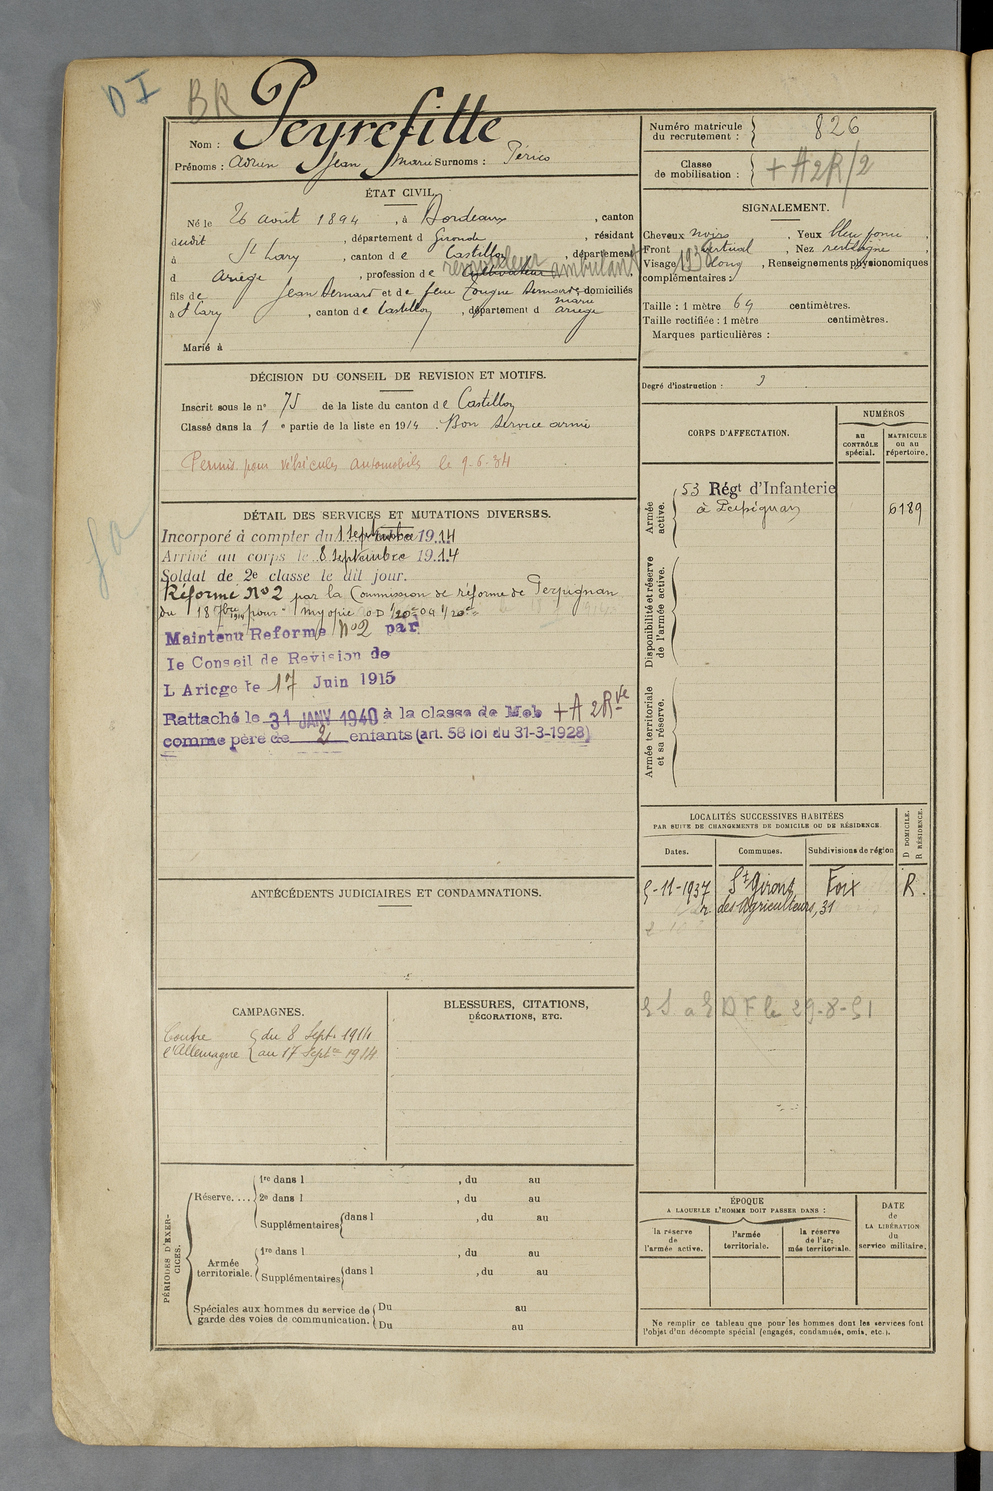 DI BR
Nom : Peyrefitte
Prénoms : Adrien Jean Marie Surnoms : Périco
ÉTAT CIVIL.
Né le 26 août 1894, à Bordeaux, canton
dudit, département d Gironde, résidant
à St Lary, canton de Castillon, département
d Ariège, profession de rémouleur ambulant
fils de Jean Bernard et de feue Zougne Bernarde Marie domiciliés
à St Lary, canton de Castillon, département d Ariège
Marié à
DÉCISION DU CONSEIL DE REVISION ET MOTIFS.
Inscrit sous le n° 75 de la liste du canton de Castillon
Classé dans la 1 e partie de la liste en 1914. Bon service armé
Permis pour véhicules automobiles le 9-6-34
DÉTAIL DES SERVICES ET MUTATIONS DIVERSES.
Incorporé à compter du 1 septembre 1914
Arrivé au corps le 8 septembre 1914
Soldat de 2e classe le dit jour.
Réformé N°2 par la Commission de réforme de Perpignan
du 18 7bre 1914 pour "myopie O.D 1/20e O G 1/20e"
Maintenu Reformé N°2 par
le Conseil de Revision de
L Ariege le 17 Juin 1915
Rattaché le 31 JANV 1940 à la classe de Mob + A 2Rve
comme père de 2 enfants (art. 58 loi du 31-3-1928)
ANTÉCÉDENTS JUDICIAIRES ET CONDAMNATIONS.
CAMPAGNES.
Contre l'Allemagne { du 8 Sept. 1914
au 17 Septbre 1914
BLESSURES, CITATIONS,
DÉCORATIONS, ETC.
PÉRIODES D'EXERCICES.
Réserve....
1re dans l , du au
2e dans l , du au
Supplémentaires dans l , du au
Armée territoriale.
1re dans l , du au
Supplémentaires dans l , du au
Spéciales aux hommes du service de garde des voies de communication.
Du au
Du au
Numéro matricule du recrutement : 826
Classe de mobilisation : + A2R/2
SIGNALEMENT.
Cheveux noirs, Yeux bleu foncé,
Front vertical, Nez rectiligne
Visage long, Renseignements physionomiques
complémentaires :
1938
Taille : 1 mètre 69 centimètres.
Taille rectifiée : 1 mètre centimètres.
Marques particulières :
Degré d'instruction : 3
CORPS D'AFFECTATION.
NUMÉROS
au CONTRÔLE spécial.
MATRICULE ou au répertoire.
Armée active.
53 Régt d'Infanterie
à Perpignan
6189
Disponibilité et réserve de l'armée active.
Armée territoriale et sa réserve.
LOCALITÉS SUCCESSIVES HABITÉES
PAR SUITE DE CHANGEMENTS DE DOMICILE OU DE RÉSIDENCE.
Dates. Communes. Subdivisions de région
D DOMICILE.
R RÉSIDENCE.
5-11-1937 St Girons Foix R.
r. des Agriculteurs, 31
DF le 29-8-51
ÉPOQUE
A LAQUELLE L'HOMME DOIT PASSER DANS :
la réserve de l'armée active.
l'armée territoriale.
la réserve de l'armée territoriale.
DATE de LA LIBÉRATION du service militaire.
Ne remplir ce tableau que pour les hommes dont les services font
l'objet d'un décompte spécial (engagés, condamnés, omis, etc.).